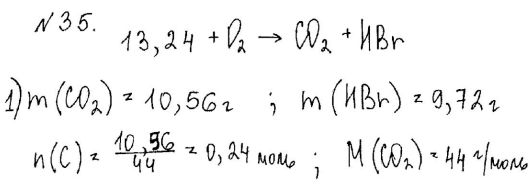 №35.
13,24 + O₂ → CO₂ + HBr
1) m(CO₂) = 10,56г ; m(HBr) = 9,72г
n(C) = 10,56/44 = 0,24 моль ; M(CO₂) = 44 г/моль